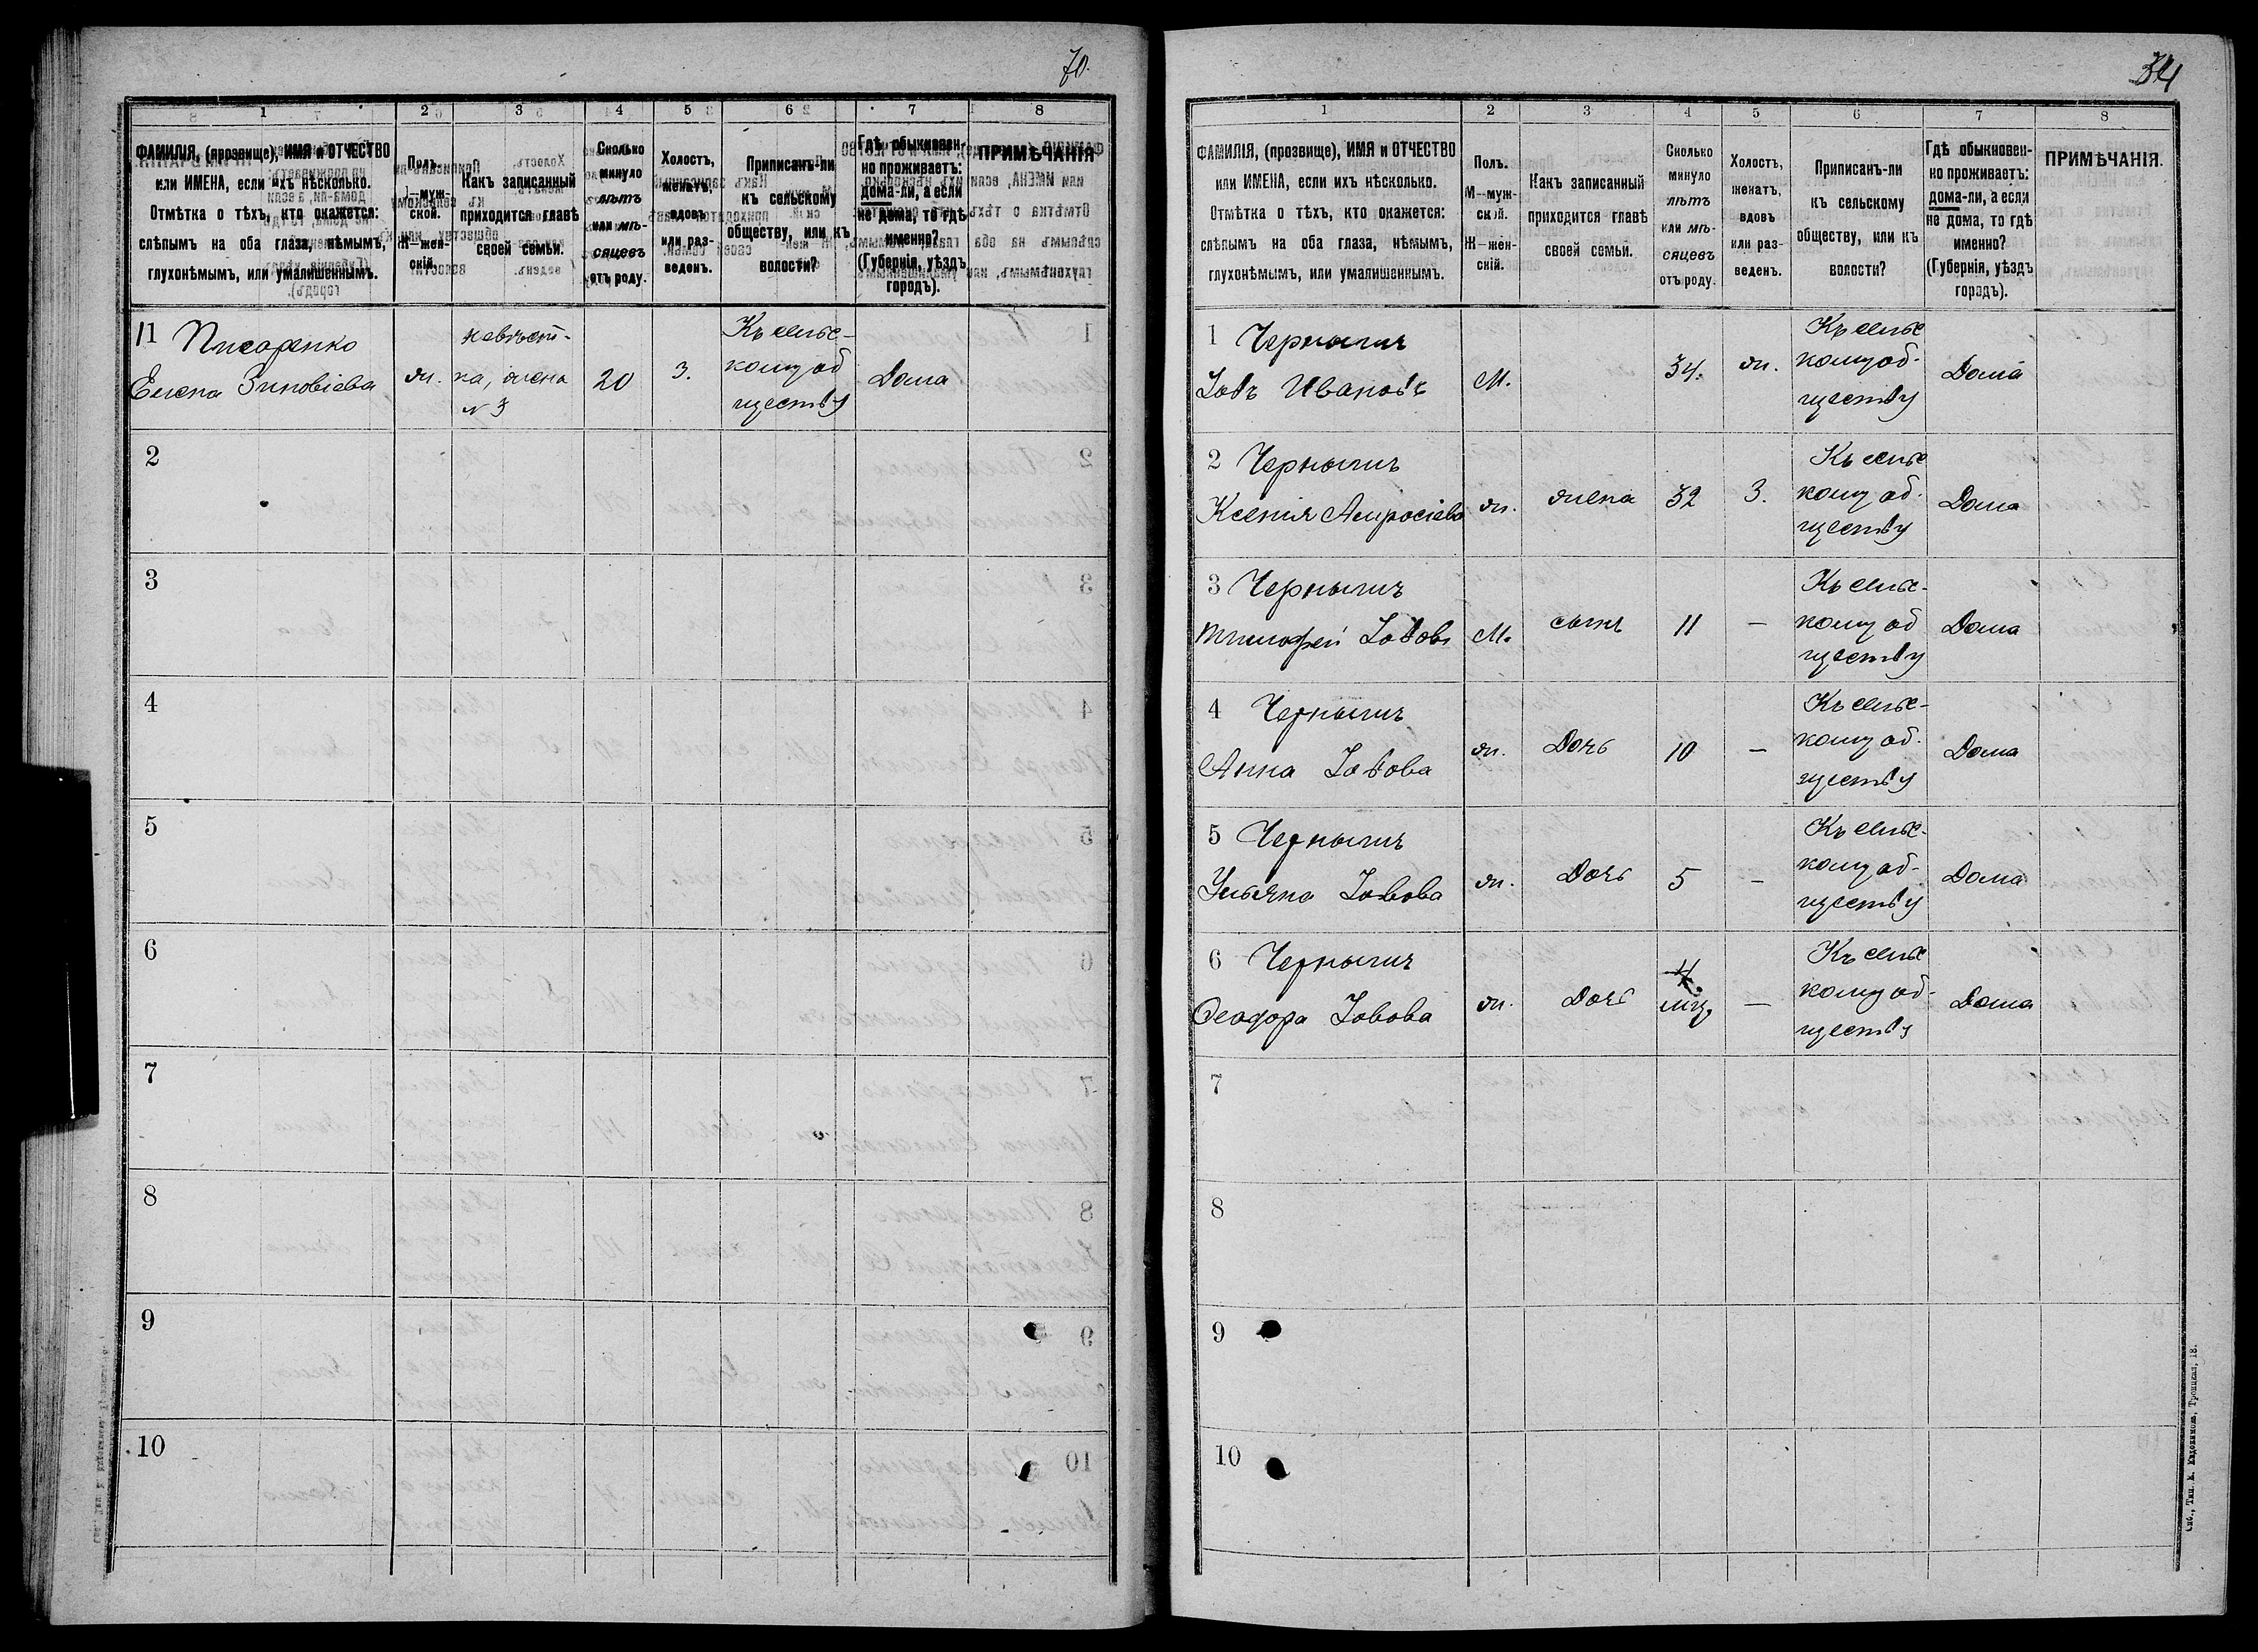 70.
1 2 3 4 5 6 7 8
ФАМИЛІЯ, (прозвище), ИМЯ и ОТЧЕСТВО
или ИМЕНА, если ихъ нѣсколько.
Отмѣтка о тѣхъ, кто окажется:
слѣпымъ на оба глаза, нѣмымъ,
глухонѣмымъ, или умалишеннымъ.
Полъ.
М—муж-
ской.
Ж—жен-
скій.
Какъ записанный
приходится главѣ
своей семьи.
Сколько
минуло
лѣтъ
или мѣ-
сяцевъ
отъ роду.
Холостъ,
женатъ,
вдовъ
или раз-
веденъ.
Приписанъ-ли
къ сельскому
обществу, или къ
волости?
Гдѣ обыкновен-
но проживаетъ:
дома-ли, а если
не дома, то гдѣ
именно?
(Губернія, уѣздъ
городъ).
ПРИМѢЧАНІЯ
11 Писаренко
Елена Зиновіева
ж.
невѣст-
ка, жена
№ 3
20
З.
Къ сельс-
кому об
ществу
Дома
2
3
4
5
6
7
8
9
10
34
1 2 3 4 5 6 7 8
ФАМИЛІЯ, (прозвище), ИМЯ и ОТЧЕСТВО
или ИМЕНА, если ихъ нѣсколько.
Отмѣтка о тѣхъ, кто окажется:
слѣпымъ на оба глаза, нѣмымъ,
глухонѣмымъ, или умалишеннымъ.
Полъ.
М—муж-
ской.
Ж—жен-
скій.
Какъ записанный
приходится главѣ
своей семьи.
Сколько
минуло
лѣтъ
или мѣ-
сяцевъ
отъ роду.
Холостъ,
женатъ,
вдовъ
или раз-
веденъ.
Приписанъ-ли
къ сельскому
обществу, или къ
волости?
Гдѣ обыкновен-
но проживаетъ:
дома-ли, а если
не дома, то гдѣ
именно?
(Губернія, уѣздъ
городъ).
ПРИМѢЧАНІЯ.
1 Чернышъ
Іовъ Ивановъ
М.
34.
ж.
Къ сельс
кому об-
ществу
Дома
2 Чернышъ
Ксенія Амросіева
ж.
жена
32
З.
Къ сельс
кому об-
ществу
Дома
3 Чернышъ
Тимофей Іововъ
М.
сынъ
11
—
Къ сельс-
кому об
ществу
Дома
4 Чернышъ
Анна Іовова
ж.
Дочь
10
—
Къ сельс-
кому об-
ществу
Дома
5 Чернышъ
Ульяна Іовова
ж.
Дочь
5
—
Къ сельс-
кому об-
ществу
Дома
6 Чернышъ
Феодора Іовова
ж.
Дочь
мц.
—
Къ сельс
кому об-
ществу
Дома
7
8
9
10
Спб., Тип. Е. Евдокимова, Троицкая, 18.